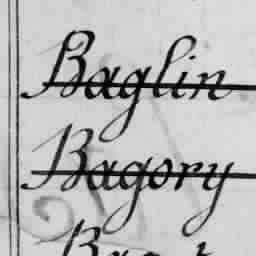 Baglin
Bagory